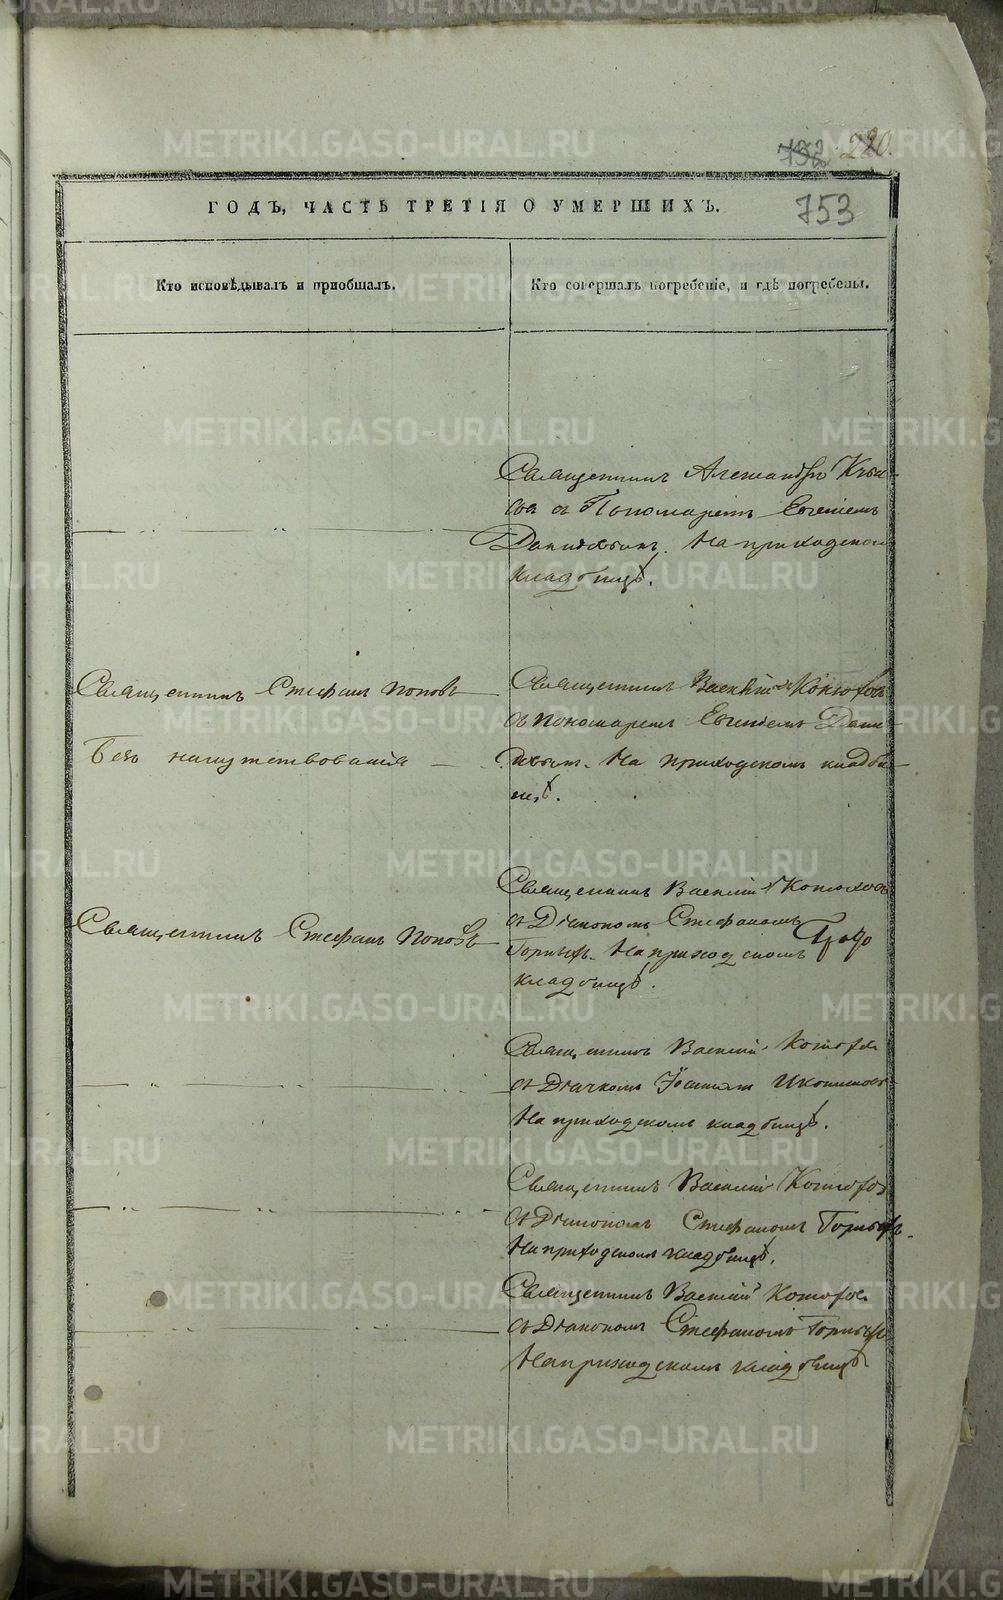 732 220.
ГОДЪ, ЧАСТЬ ТРЕТІЯ О УМЕРШИХЪ. 753
Кто исповѣдывалъ и приобщалъ.
Кто совершалъ погребеніе, и гдѣ погребены.
Священникъ Александръ
съ Пономаремъ Евгеніемъ
На приходскомъ
кладбищѣ.
Священникъ Стефанъ Поповъ
Безъ напутствованія
Священникъ Василій Конюхов
съ пономаремъ Евгеніемъ
На приходскомъ кладби-
щѣ.
Священникъ Стефанъ Поповъ
Священникъ Василій Конюховъ
съ Діакономъ Стефаномъ
На приходскомъ
кладбищѣ.
Священникъ Василій Конюхов
съ Дьячкомъ
На приходскомъ кладбищѣ.
Священникъ Василій Конюхов
съ Діакономъ Стефаномъ
На приходскомъ кладбищѣ.
Священникъ Василій Конюхов
съ Діакономъ Стефаномъ
На приходскомъ кладбищѣ
METRIKI.GASO-URAL.RU